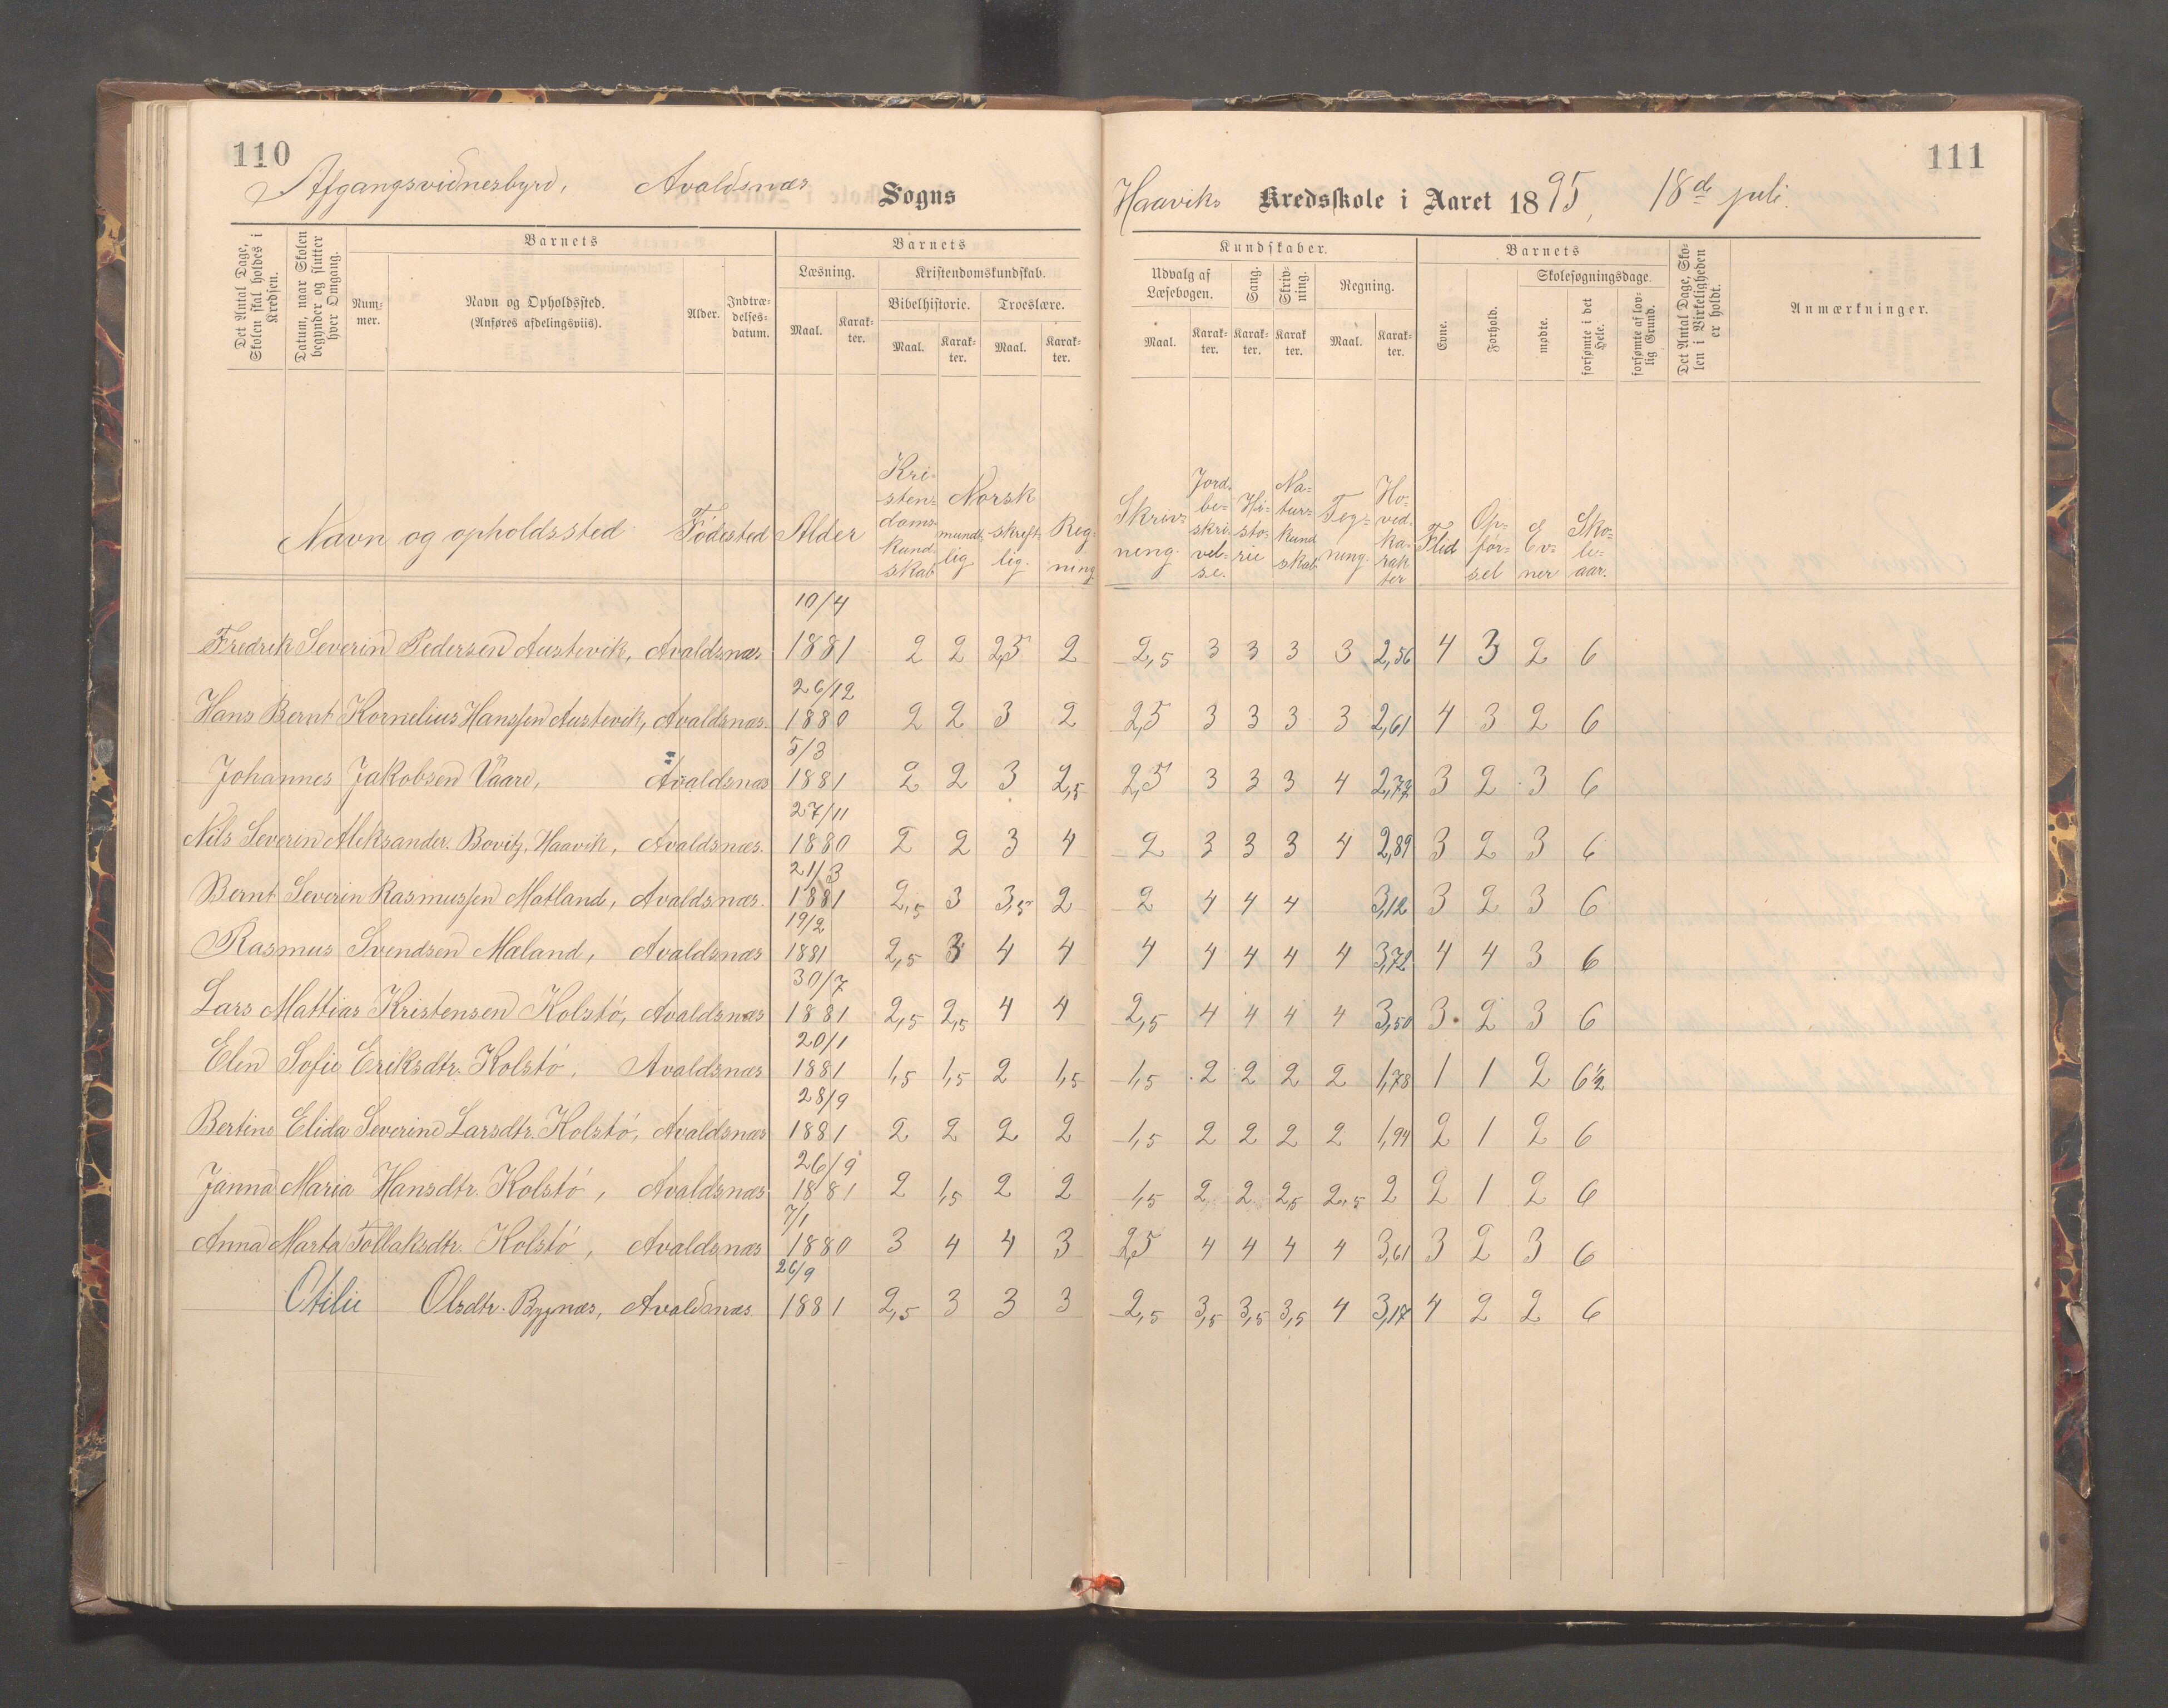 110
Afgangsvidnesbyrd, Avaldsnæs Sogns
Det Antal Dage, Skolen skal holdes i Kredsen.
Datum, naar Skolen begynder og slutter hver Omgang.
Barnets
Num-mer.
Navn og Opholdssted.
(Anføres afdelingsviis).
Alder.
Indtræ-delses-datum.
Barnets
Læsning.
Maal.
Karak-ter.
Kristendomskundskab.
Bibelhistorie.
Troeslære.
Maal.
Karak-ter.
Maal.
Karak-ter.
Navn og opholdssted Födested Alder Kri-sten-doms-kund-skab Norsk mundt-lig skrift-lig. Reg-ning.
111
Haaviks Kredsskole i Aaret 1895, 18de juli.
Kundskaber.
Udvalg af Læsebogen.
Sang.
Skriv-ning.
Regning.
Maal.
Karak-ter.
Karak-ter.
Karak ter.
Maal.
Karak-ter.
Barnets
Evne.
Forhold.
Skolesøgningsdage.
mødte.
forsømte i det Hele.
forsømte af lov-lig Grund.
Det Antal Dage, Sko-len i Virkeligheden er holdt.
Anmærkninger.
Skriv-ning. Jord-be-skri-vel-se. Hi-sto-rie Na-tur-kund skab Teg-ning. Ho-ved-ka-rak ter Flid Op-för-sel Ev-ner Sko-le-aar.
10/4
Fredrik Severin Pedersen Austevik, Avaldsnæs 1881 2 2 2,5 2 2,5 3 3 3 3 2,56 4 3 2 6
26/12
Hans Bernt Kornelius Hanssen Austevik, Avaldsnæs. 1880 2 2 3 2 2,5 3 3 3 3 2,61 4 3 2 6
5/3
Johannes Jakobsen Vaare, Avaldsnæs 1881 2 2 3 2,5 2,5 3 3 3 4 2,77 3 2 3 6
27/11
Nils Severin Aleksander Bovitz, Haavik, Avaldsnæs. 1880 2 2 3 4 2 3 3 3 4 2,89 3 2 3 6
21/3
Bernt Severin Rasmussen Matland, Avaldsnæs. 1881 2,5 3 3,5 2 2 4 4 4 3,12 3 2 3 6
19/2
Rasmus Svendsen Maland, Avaldsnæs 1881 2,5 3 4 4 4 4 4 4 4 3,72 4 4 3 6
30/7
Lars Mattias Kristensen Kolstö, Avaldsnæs 1881 2,5 2,5 4 4 2,5 4 4 4 4 3,50 3 2 3 6
20/1
Elen Sofie Eriksdtr. Kolstö, Avaldsnæs 1881 1,5 1,5 2 1,5 1,5 2 2 2 2 1,78 1 1 2 6½
28/9
Bertine Elida Severine Larsdtr. Kolstö, Avaldsnæs 1881 2 2 2 2 1,5 2 2 2 2 1,94 2 1 2 6
26/9
Janna Maria Hansdtr. Kolstö, Avaldsnæs 1881 2 1,5 2 2 1,5 2 2 2,5 2,5 2 2 1 2 6
7/1
Anna Marta Tollaksdtr. Kolstö, Avaldsnæs 1880 3 4 4 3 2,5 4 4 4 4 3,61 3 2 3 6
26/9
Otilie Olsdtr. Bygnæs, Avaldsnæs 1881 2,5 3 3 3 2,5 3,5 3,5 3,5 4 3,17 4 2 2 6